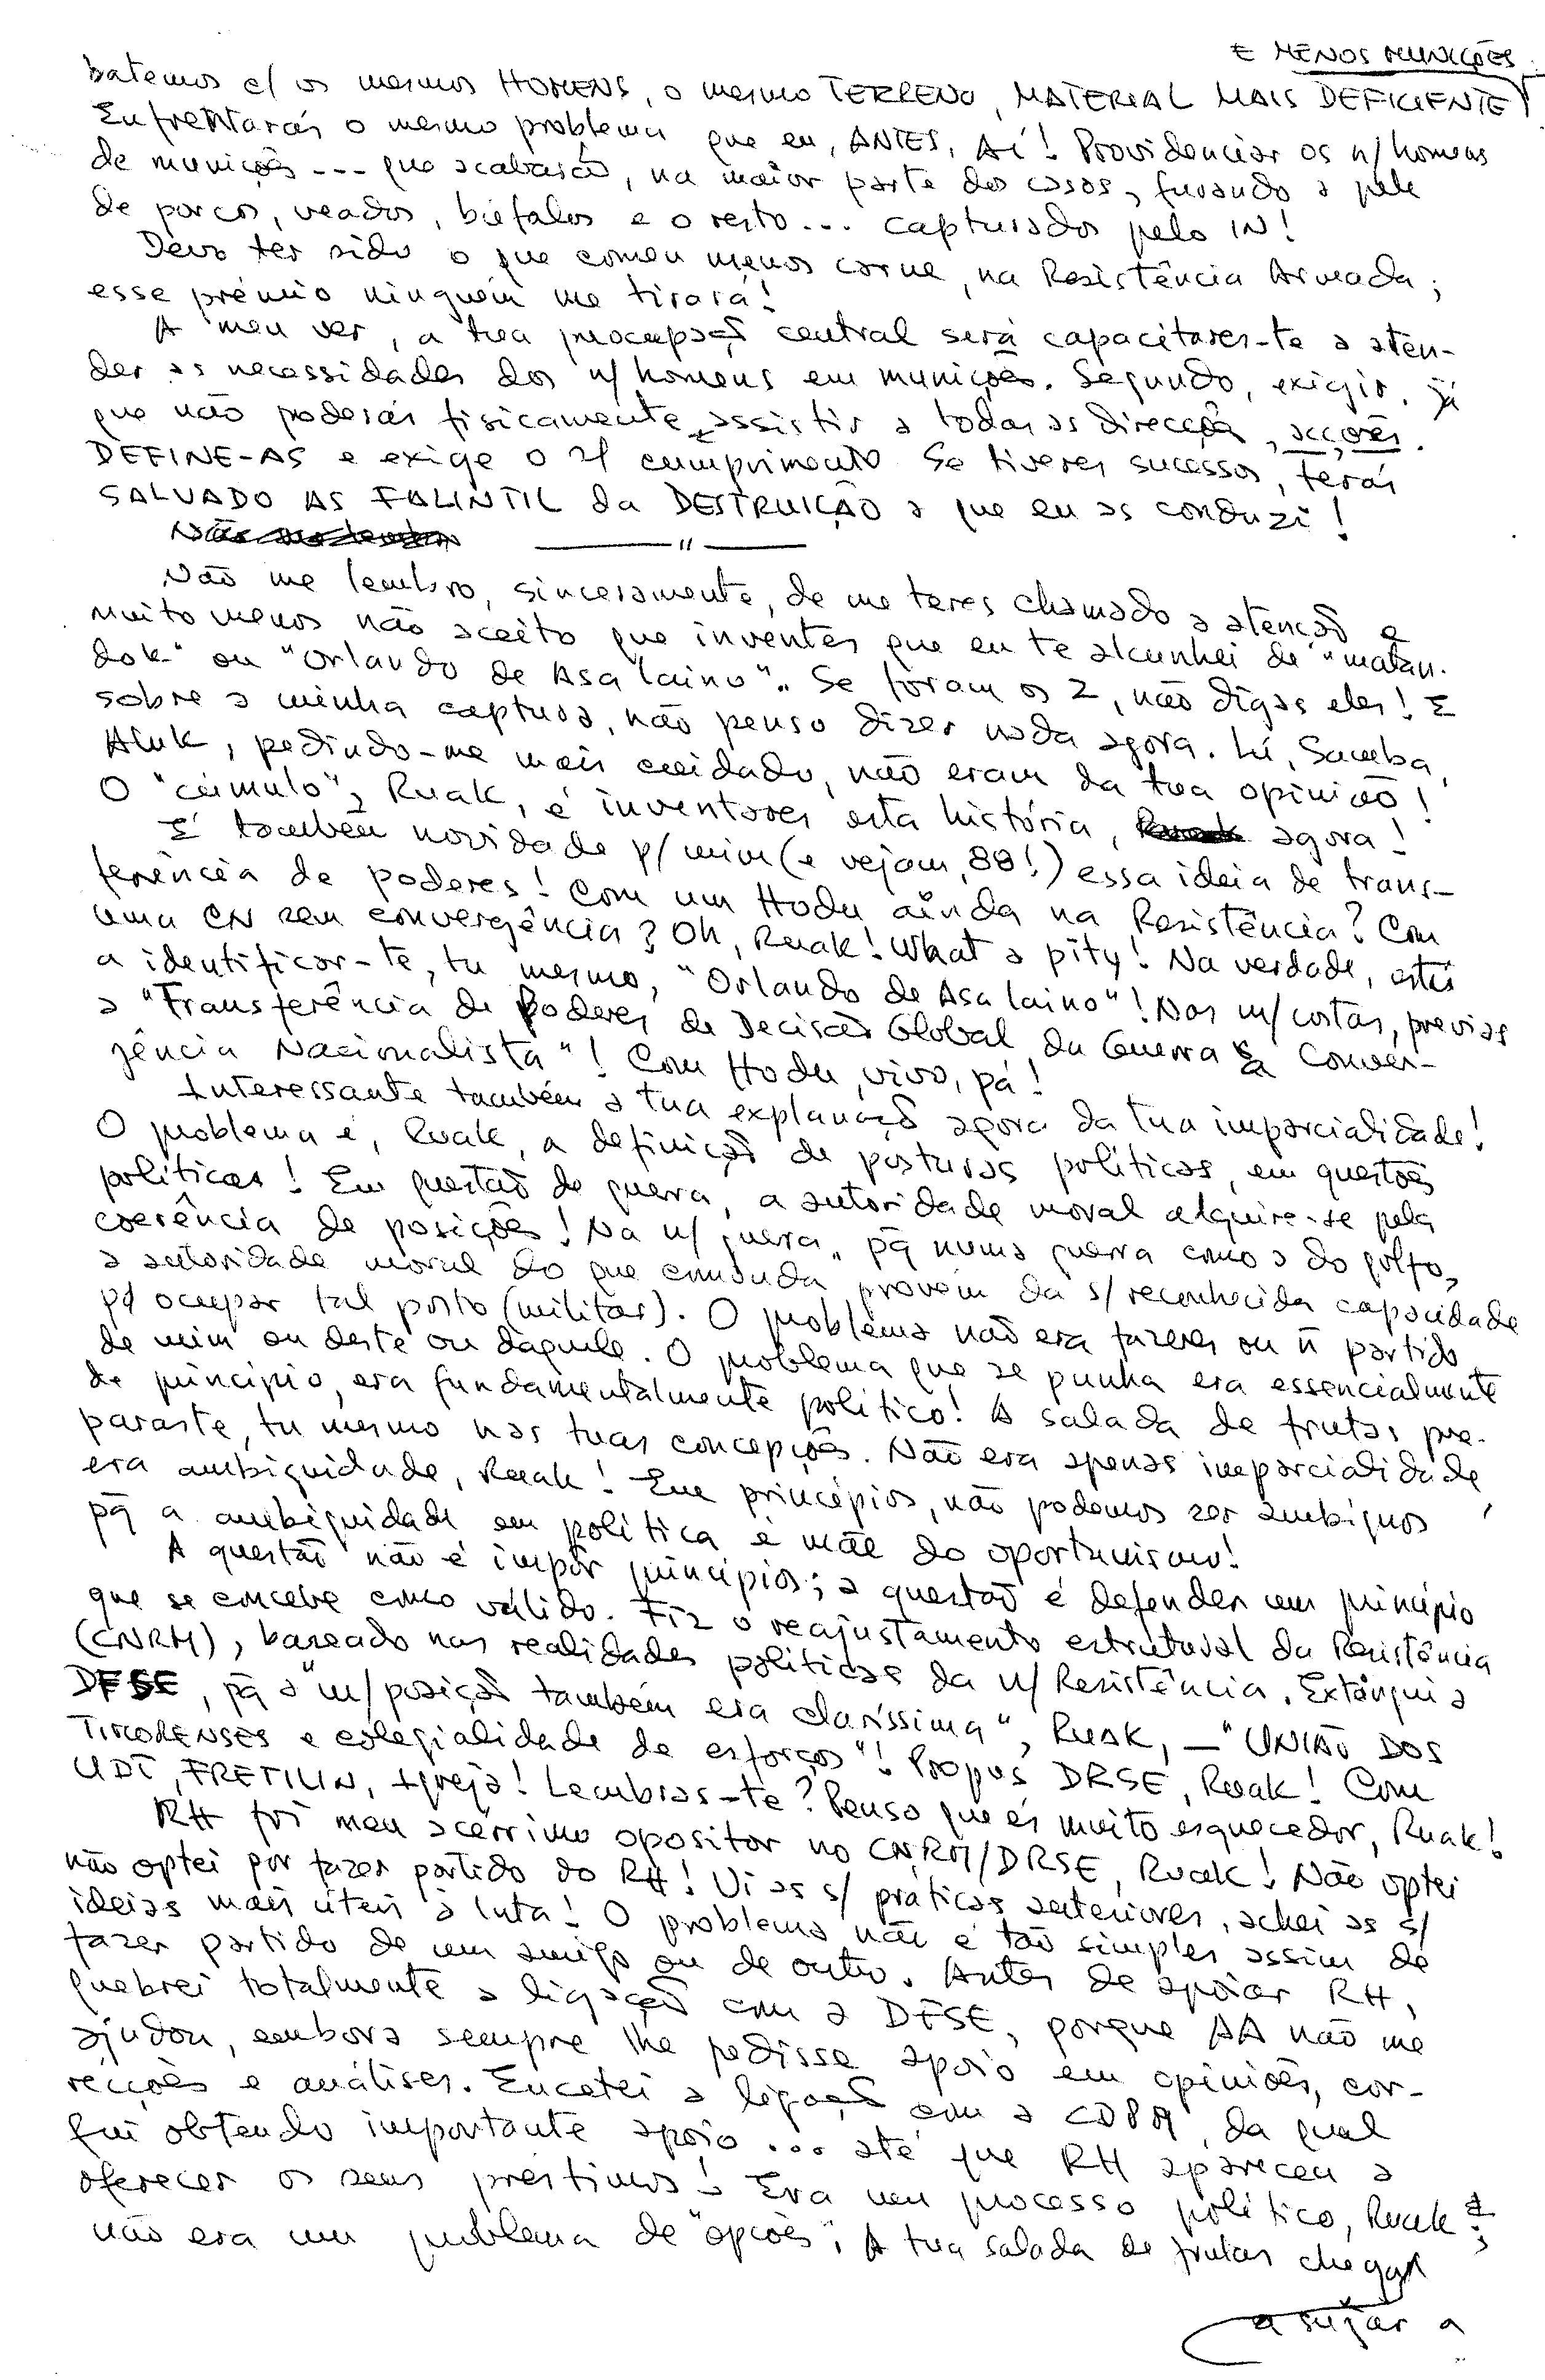 E MENOS MUNIÇÕES
batemos c/ os mesmos HOMENS, o mesmo TERRENO, MATERIAL MAIS DEFICIENTE
Enfrentarás o mesmo problema que eu, ANTES, Aí! Providenciar os n/ homens
de munições --- que acabarão, na maior parte dos casos, furando a pele
de porcos, veados, búfalos e o resto... capturados pelo IN!
Devo ter sido o que comeu menos carne, na Resistência Armada;
esse prémio ninguém me tirará!
A meu ver, a tua preocupação central será capacitares-te a aten-
der as necessidades dos n/ homens em munições. Segundo, exigir, já
que não poderás fisicamente assistir a todas as direcções, acções.
DEFINE-AS e exige o s/ cumprimento. Se tiveres sucessos, terás
SALVADO AS FALINTIL da DESTRUIÇÃO a que eu as conduzi!
— " —
Não me lembro, sinceramente, de me teres chamado a atenção e
muito menos não aceito que inventes que eu te alcunhei de "matan-
dok" ou "Orlando de Asalaino". Se foram os 2, não digas eles! E
sobre a minha captura, não penso dizer nada agora. Lí, Samba,
Aluk, pedindo-me mais cuidado, não eram da tua opinião!
O "cúmulo", Ruak, é inventares esta história, agora!
É também novidade p/ mim (e vejam, 88!) essa ideia de trans-
ferência de poderes! Com um Hodu ainda na Resistência? Com
uma CN sem convergência? Oh, Ruak! What a pity! Na verdade, estás
a identificar-te, tu mesmo, "Orlando de Asalaino"! Nas m/ costas, previas
a "Transferência de Poderes de Decisão Global da Guerra à Conver-
gência Nacionalista"! Com Hodu, vivo, pá!
Interessante também a tua explanação agora da tua imparcialidade!
O problema é, Ruak, a definição de posturas políticas, em questões
políticas! Em questão de guerra, a autoridade moral adquire-se pela
coerência de posições! Na n/ guerra, pq numa guerra como a do golfo,
a autoridade moral do que comanda provém da s/ reconhecida capacidade
p/ ocupar tal posto (militar). O problema não era fazeres ou ñ partido
de mim ou deste ou daquele. O problema que se punha era essencialmente
de princípio, era fundamentalmente político! A salada de frutas pre-
paraste, tu mesmo nas tuas concepções. Não era apenas imparcialidade,
era ambiguidade, Ruak! Em princípios, não podemos ser ambíguos
pq a ambiguidade em política é mãe do oportunismo!
A questão não é impôr princípios; a questão é defender um princípio
que se concebe como válido. Fiz o reajustamento estrutural da Resistência
(CNRM), baseado nas realidades políticas da n/ Resistência. Extinguí a
DFSE, pq a "m/ posição também era claríssima", Ruak, — "UNIÃO DOS
TIMORENSES e colegialidade de esforços"! Propus DRSE, Ruak! Com
UDT, FRETILIN, Igreja! Lembras-te? Penso que és muito esquecedor, Ruak!
RH foi meu acérrimo opositor no CNRM/DRSE, Ruak! Não optei
não optei por fazer partido do RH! Vi as s/ práticas anteriores, achei as s/
ideias mais úteis à luta! O problema não é tão simples assim de
fazer partido de um amigo ou de outro. Antes de apoiar RH,
quebrei totalmente a ligação com a DFSE, porque AA não me
ajudou, embora sempre lhe pedisse apoio em opiniões, cor-
recções e análises. Encetei a ligação com a CDPM, da qual
fui obtendo importante apoio... até que RH apareceu a
oferecer os seus préstimos! Era um processo político, Ruak!
não era um problema de "opções"; A tua salada de frutas chega
a sujar a